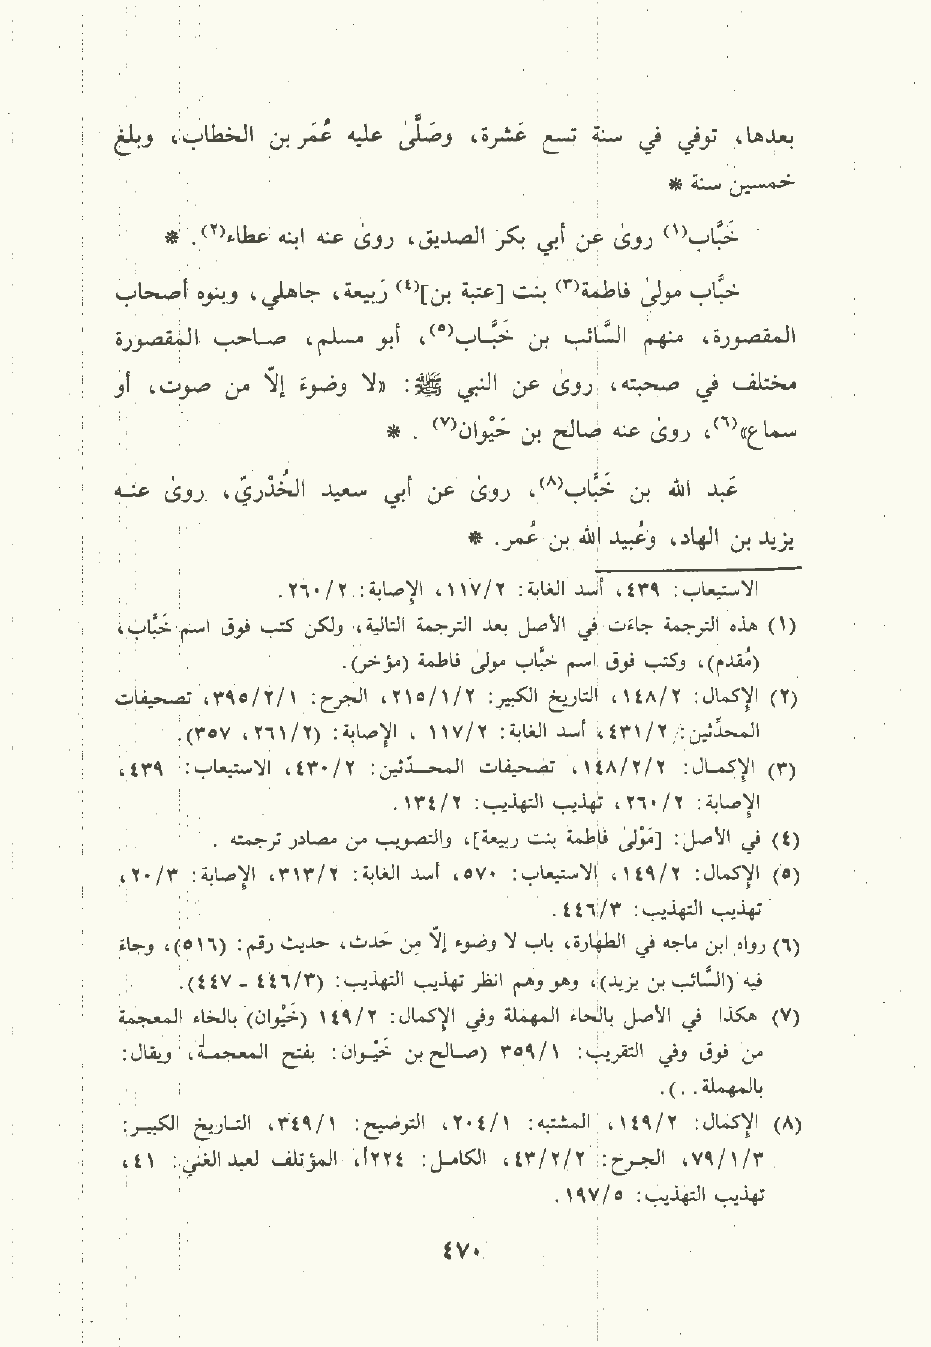 بعدها، توفي في سنة تسع عَشرة، وصَلَّىٰ عليه عُمَر بن الخطاب، وبلغ
خمسين سنة *
خَبَّاب(١) روىٰ عن أبي بكر الصديق، روىٰ عنه ابنه عطاء(٢). *
خبَّاب مولىٰ فاطمة(٣) بنت [عتبة بن](٤) رَبيعة، جاهلي، وبنوه أصحاب
المقصورة، منهم السَّائب بن خَبَّاب(٥)، أبو مسلم، صاحب المقصورة
مختلف في صحبته، روىٰ عن النبي ﷺ: «لا وضوءَ إلاَّ من صوت، أو
سماع»(٦)، روىٰ عنه صالح بن حَيْوان(٧) . *
عَبد الله بن خَبَّاب(٨)، روىٰ عن أبي سعيد الخُدْريّ، روىٰ عنه
يزيد بن الهاد، وعُبيد الله بن عُمر. *
الاستيعاب: ٤٣٩، أسد الغابة: ١١٧/٢، الإصابة: ٢٦٠/٢.
(١) هذه الترجمة جاءت في الأصل بعد الترجمة التالية، ولكن كتب فوق اسم خَبَّاب،
(مُقدم)، وكتب فوق اسم خبَّاب مولى فاطمة (مؤخر).
(٢) الإكمال: ١٤٨/٢، التاريخ الكبير: ٢١٥/١/٢، الجرح: ٣٩٥/٢/١، تصحيفات
المحدِّثين: ٤٣١/٢، أسد الغابة: ١١٧/٢ ، الإصابة: (٢٦١/٢، ٣٥٧).
(٣) الإكمال: ١٤٨/٢/٢، تصحيفات المحدِّثين: ٤٣٠/٢، الاستيعاب: ٤٣٩،
الإصابة: ٢٦٠/٢، تهذيب التهذيب: ١٣٤/٢.
(٤) في الأصل: [مَوْلىٰ فاطمة بنت ربيعة]، والتصويب من مصادر ترجمته .
(٥) الإكمال: ١٤٩/٢، الاستيعاب: ٥٧٠، أسد الغابة: ٣١٣/٢، الإصابة: ٢٠/٣،
تهذيب التهذيب: ٤٤٦/٣.
(٦) رواه ابن ماجه في الطهارة، باب لا وضوء إلاَّ مِن حَدث، حديث رقم: (٥١٦)، وجاءَ
فيه (السَّائب بن يزيد)، وهو وهم انظر تهذيب التهذيب: (٤٤٦/٣ - ٤٤٧).
(٧) هكذا في الأصل بالحاء المهملة وفي الإكمال: ١٤٩/٢ (خَيْوان) بالخاء المعجمة
من فوق وفي التقريب: ٣٥٩/١ (صالح بن خَيْوان: بفتح المعجمة، ويقال:
بالمهملة. .).
(٨) الإكمال: ١٤٩/٢، المشتبه: ٢٠٤/١، التوضيح: ٣٤٩/١، التاريخ الكبير:
٧٩/١/٣، الجرح: ٤٣/٢/٢، الكامل: ٢٢٤أ، المؤتلف لعبد الغني: ٤١،
تهذيب التهذيب: ١٩٧/٥.
٤٧٠